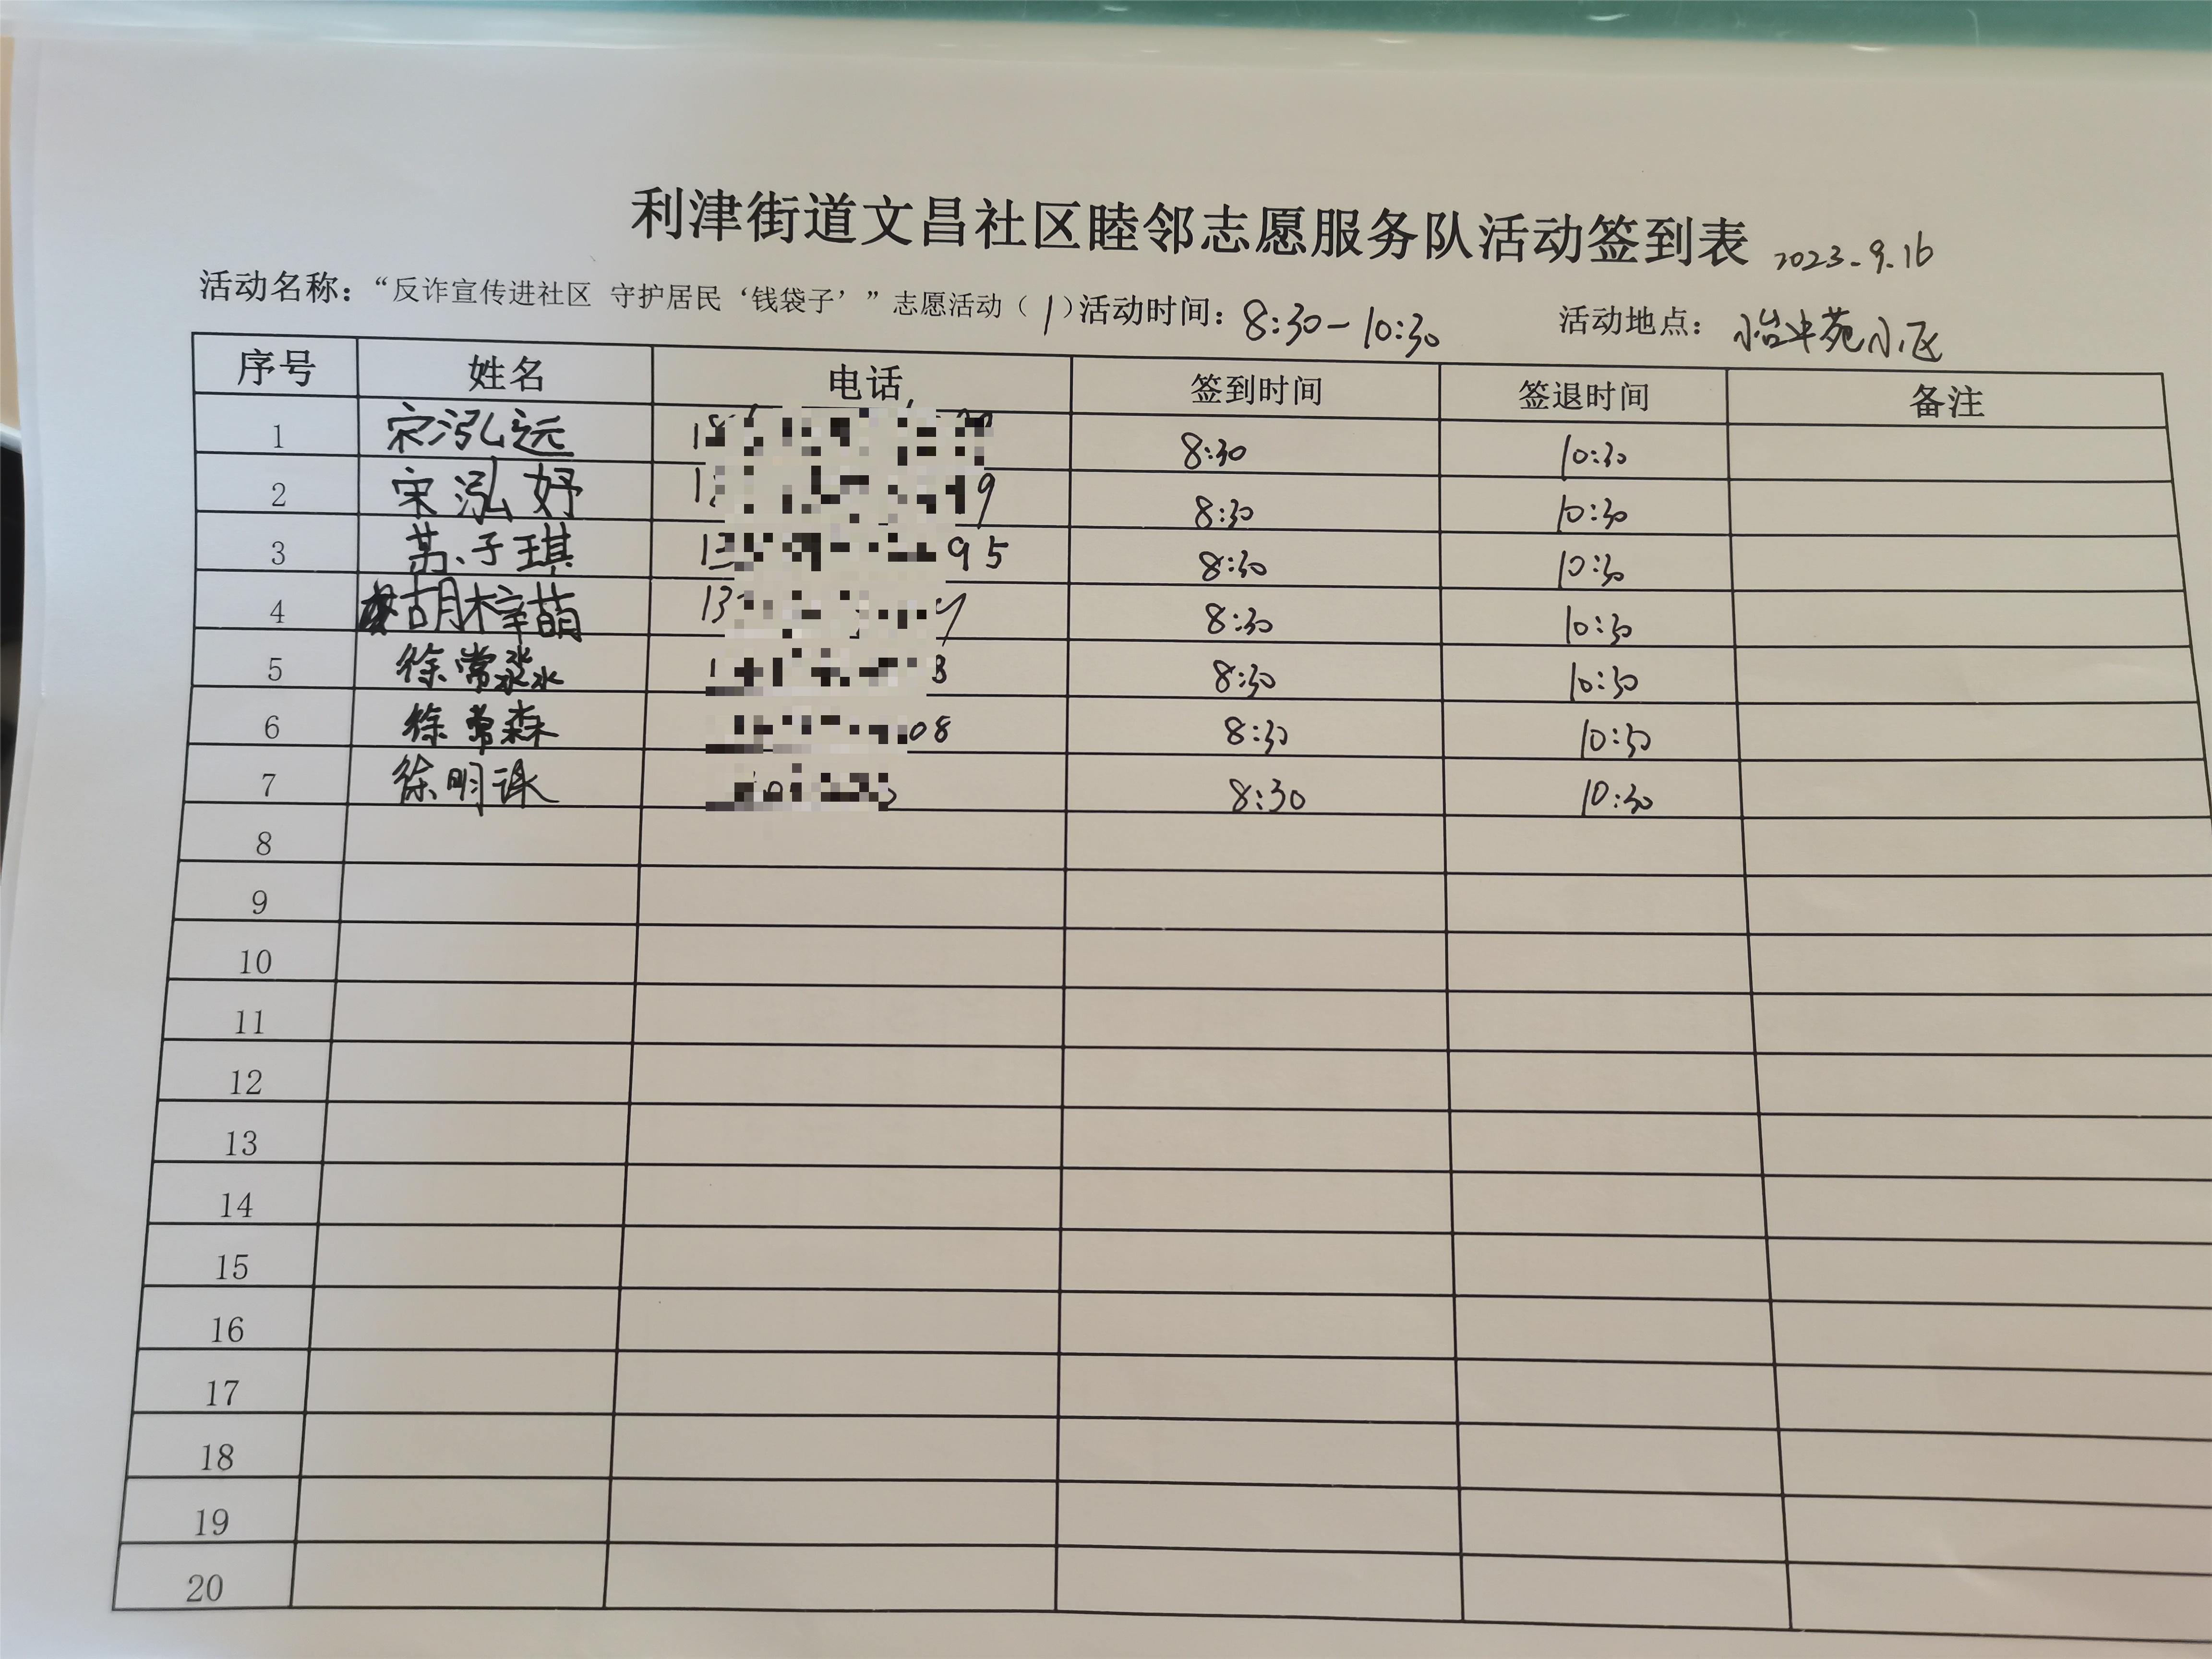 利津街道文昌社区睦邻志愿服务队活动签到表 2023.9.16
活动名称：“反诈宣传进社区 守护居民‘钱袋子’”志愿活动（1）活动时间：8:30-10:30 活动地点：怡丰苑小区
序号 姓名 电话 签到时间 签退时间 备注
1 宋泓远 8:30 10:30
2 宋泓妤 9 8:30 10:30
3 子琪 13 95 8:30 10:30
4 胡梓萌 13 8:30 10:30
5 徐常淼 1 3 8:30 10:30
6 徐常森 08 8:30 10:30
7 徐明 8:30 10:30
8
9
10
11
12
13
14
15
16
17
18
19
20